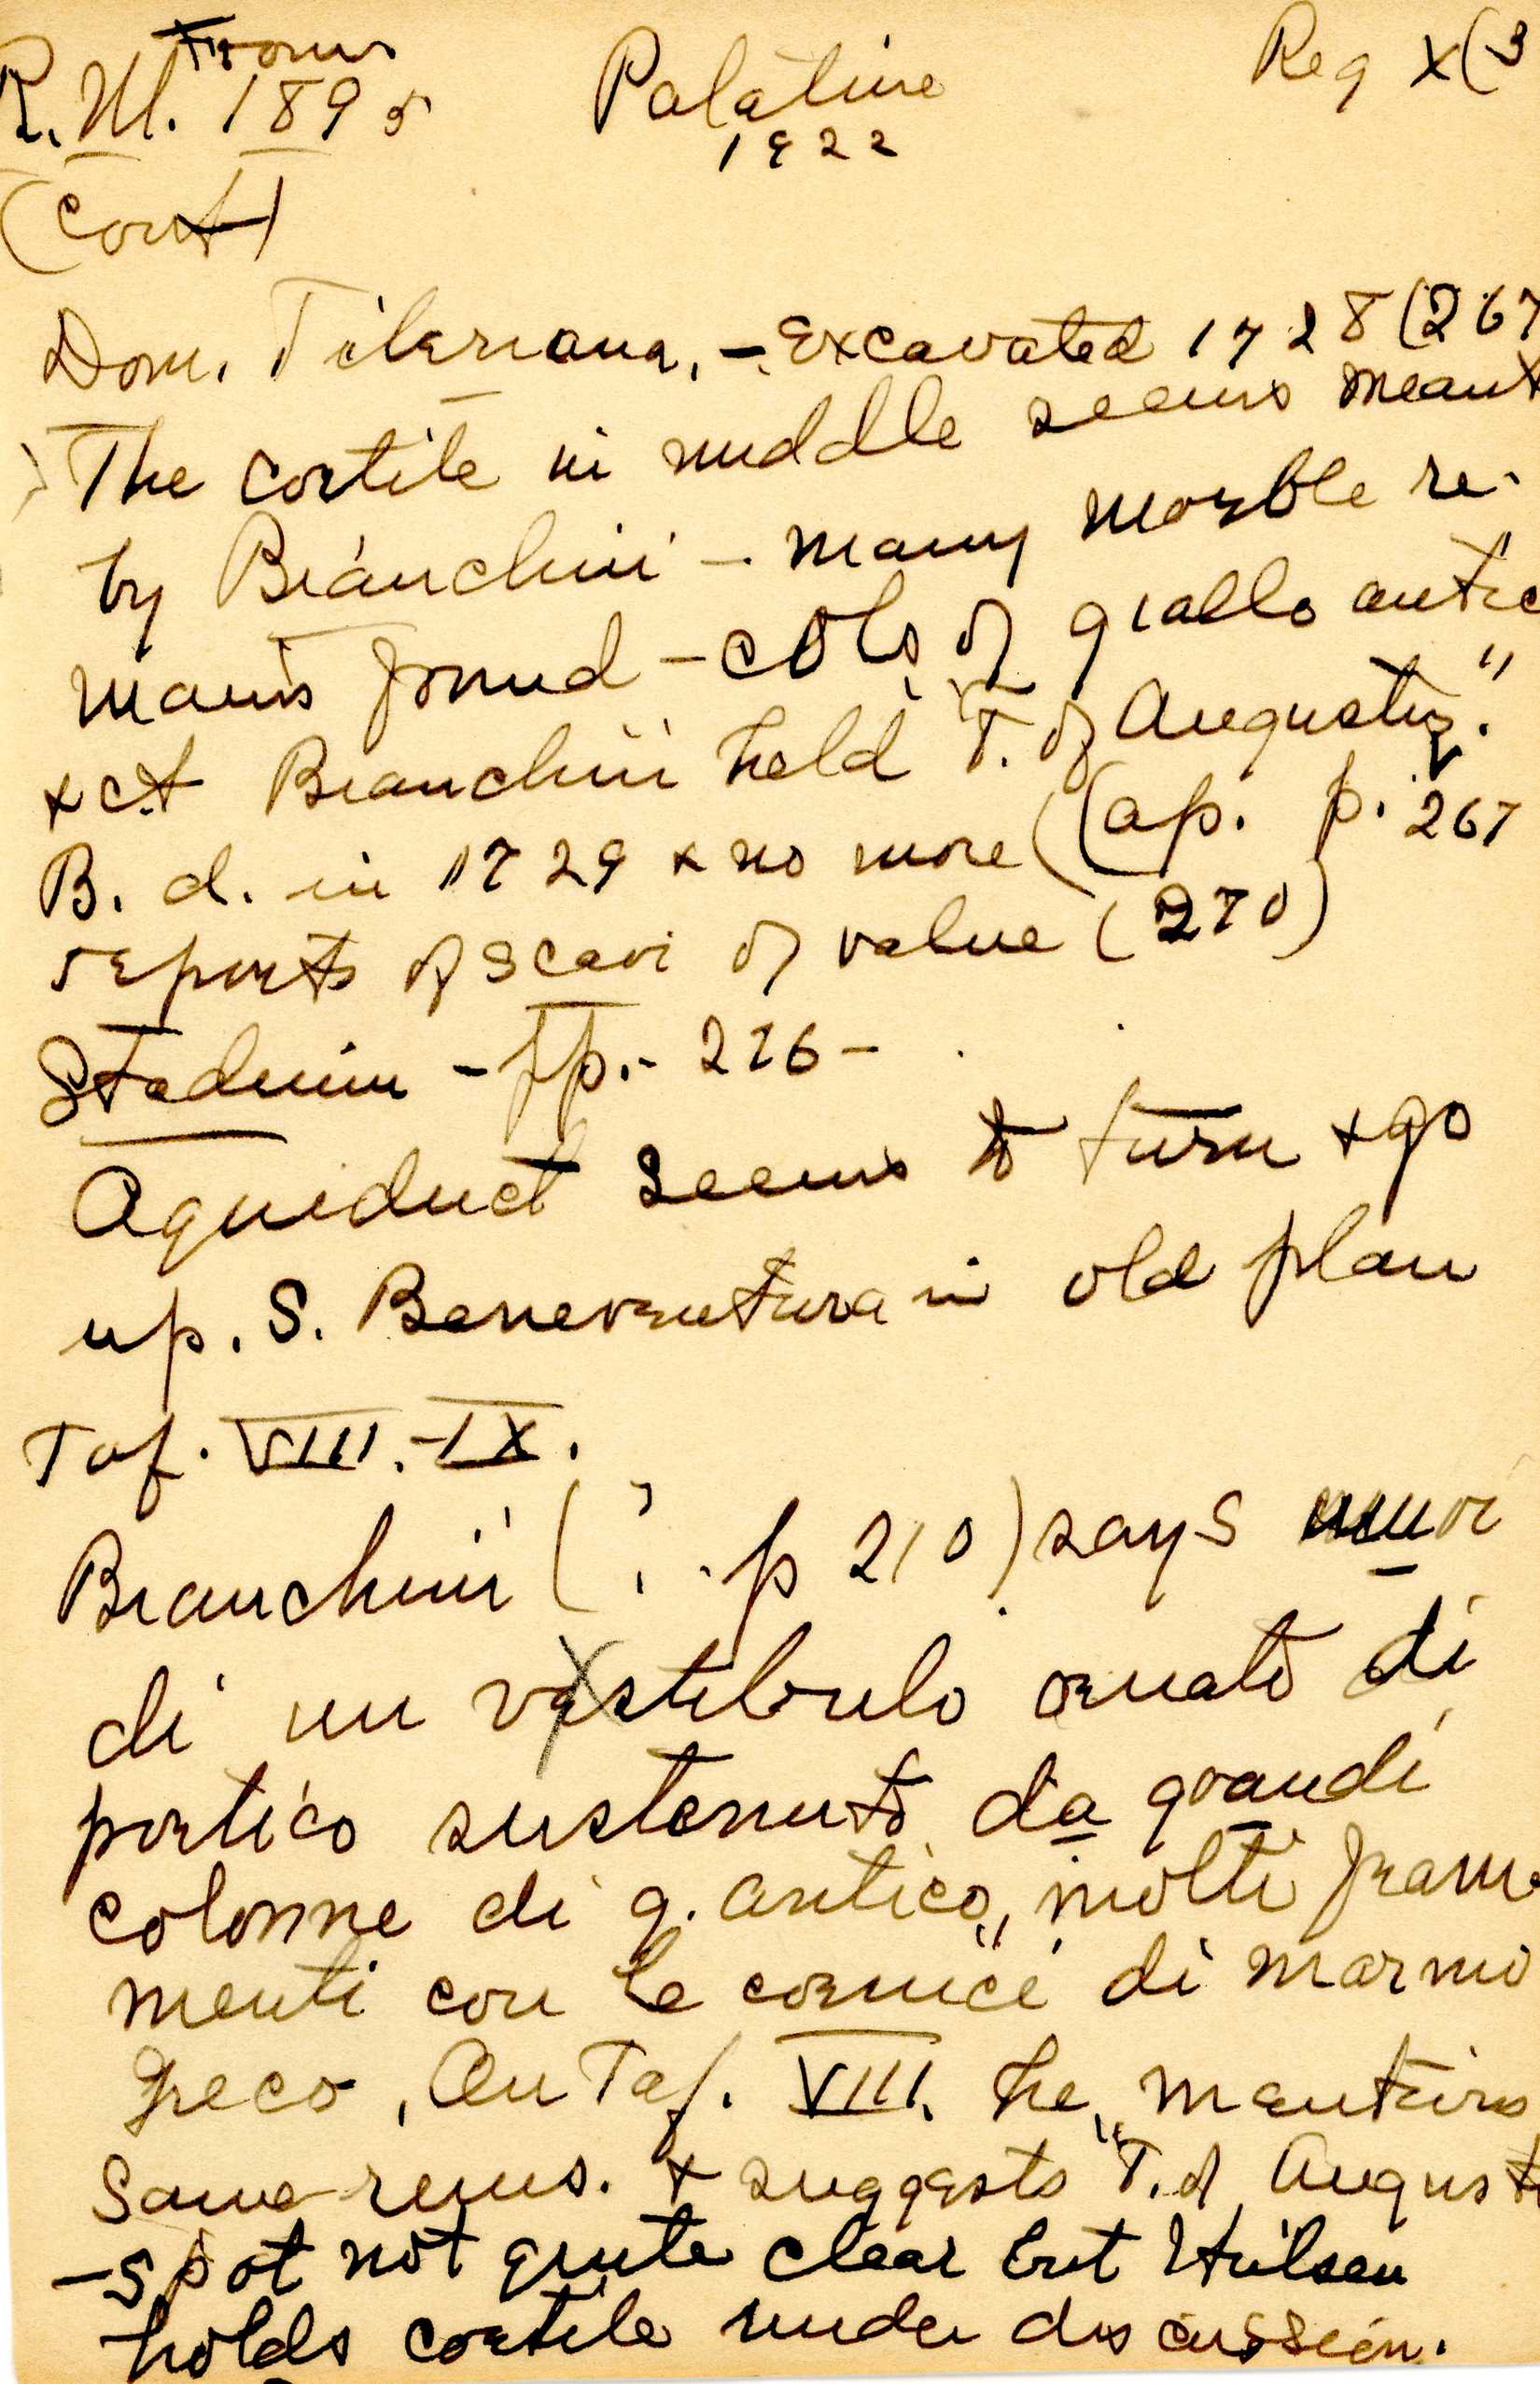 From
R. M. 1895
Palatine
1922
Reg X (3
(Cont)
Dom. Tiberiana, - Excavated 1728 (267
The cortile in middle seems meant
by Bianchini - many marble re-
mains found - cols of giallo antic
+ ct Bianchini held "T. of Augustus."
B. d. in 1729 + no more (ap. p. 267
reports of scavi of value (270)
Stadium - pp. - 276 -
Aqueduct seems to turn + go
up. S. Beneventura in old plan
Taf. VIII. - IX.
Bianchini (? . p 210) says muri
di un vestibulo ornato di
portico sustenuto da grandi
colonne di g. antico", molti fram-
menti con le cornice di marmo
Greco, On Taf. VIII. he mentions
same rems. + suggests "T. of August
- spot not quite clear but Hülsen
holds cortile under discussion.